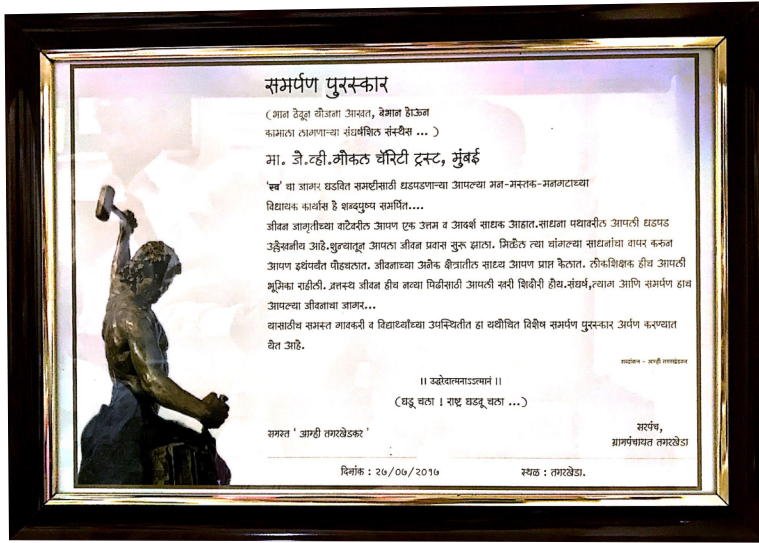 समर्पण पुरस्कार
(भान ठेवून योजना आखत, बेभान होऊन
कामाला लागणाऱ्या संघर्षशिल संस्थेस ... )
मा. जे.व्ही.गोकल चॅरिटी ट्रस्ट, मुंबई
'स्व' चा जागर घडवित समष्टीसाठी धडपडणाऱ्या आपल्या मन-मस्तक-मनगटाच्या
विधायक कार्यास हे शब्दपुष्प समर्पित....
जीवन जागृतीच्या वाटेवरील आपण एक उत्तम व आदर्श साधक आहात.साधना पथावरील आपली धडपड
उल्लेखनीय आहे.शुन्यातून आपला जीवन प्रवास सुरू झाला. मिळेल त्या चांगल्या साधनांचा वापर करुन
आपण इथंपर्यंत पोहचलात. जीवनाच्या अनेक क्षेत्रातील साध्य आपण प्राप्त केलात. लोकशिक्षक हीच आपली
भूमिका राहीली. व्रतस्थ जीवन हीच नव्या पिढीसाठी आपली खरी शिदोरी होय.संघर्ष,त्याग आणि समर्पण हाच
आपल्या जीवनाचा जागर...
यासाठीच समस्त गावकरी व विद्यार्थ्यांच्या उपस्थितीत हा यथोचित विशेष समर्पण पुरस्कार अर्पण करण्यात
येत आहे.
शब्दांकन - आम्ही तगरखेडकर
।। उद्धरेदात्मनाऽऽत्मानं ।।
(घडू चला ! राष्ट्र घडवू चला ...)
समस्त ' आम्ही तगरखेडकर '
सरपंच,
ग्रामपंचायत तगरखेडा
दिनांक : २७/०७/२०१७ स्थळ : तगरखेडा.